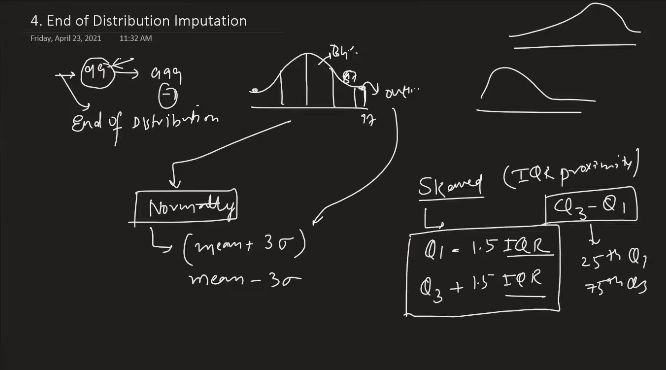 4. End of Distribution Imputation
Friday, April 23, 2021 11:32 AM
99 → 999
End of Distribution
Normally
(mean + 3σ)
mean - 3σ
Skewed (IQR proximity)
Q3 - Q1
Q1 - 1.5 IQR
Q3 + 1.5 IQR
25th Q1
75th Q3